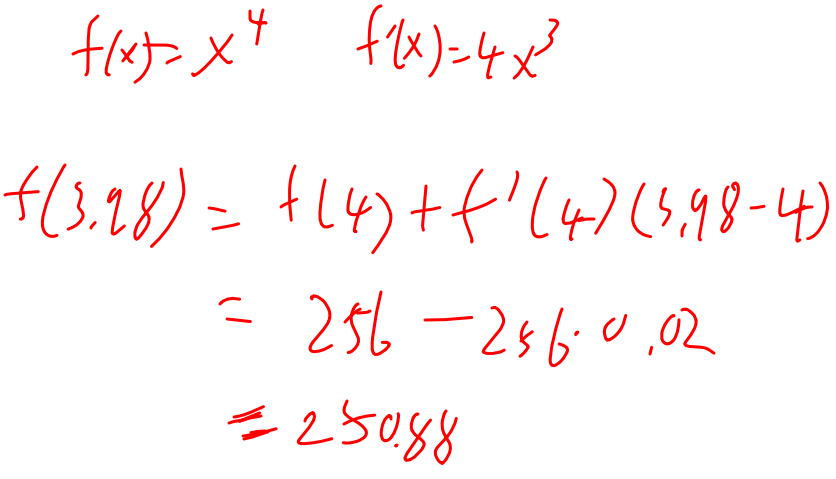 f(x)=x⁴ f'(x)=4x³
f(3.98) = f(4)+f'(4)(3.98-4)
= 256 - 256·0.02
= 250.88